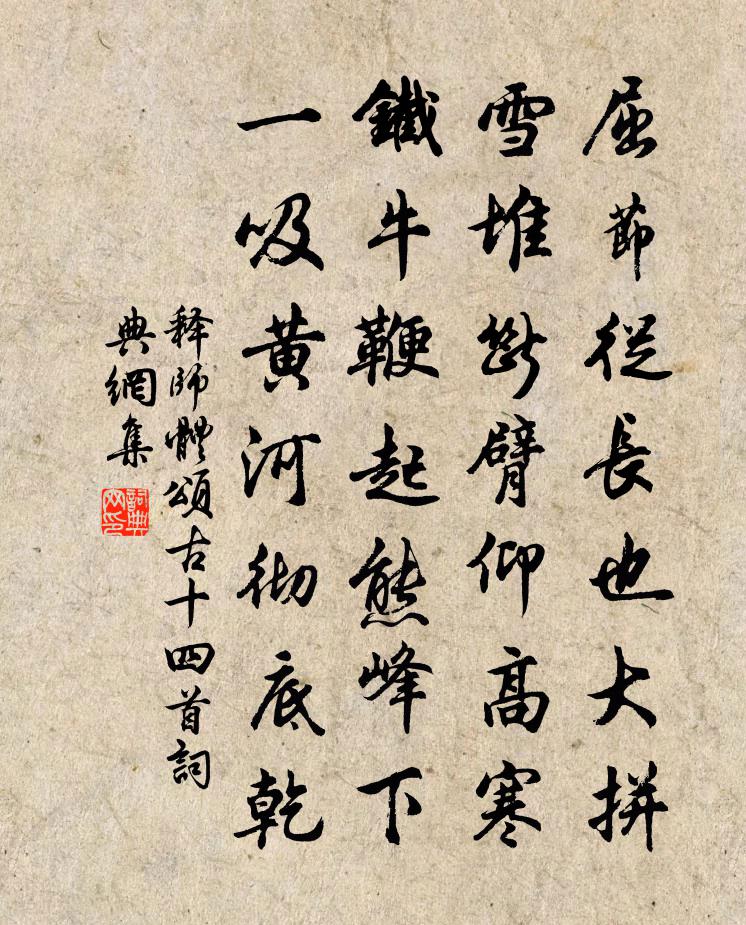 屈節從長也大拼
雪堆斷臂仰高寒
鐵牛鞭起熊峰下
一吸黃河徹底乾
释師體頌古十四首詞
典網集
詞典网印